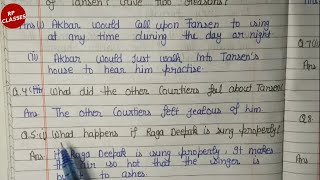 RP
CLASSES
of Tansen? Give two reasons?
Ans (i) Akbar would call upon Tansen to sing
at any time during the day or night.
(ii) Akbar would just walk into Tansen's
house to hear him practise.
Q.4 What did the other Courtiers feel about Tansen
Ans The other Courtiers felt jealous of him
Q.5 (i) What happens if Raga Deepak is sung properly?
Ans If Raga Deepak is sung properly, it makes
so hot that the singer is
to ashes.
Q.7(i)
Ans
Q.8